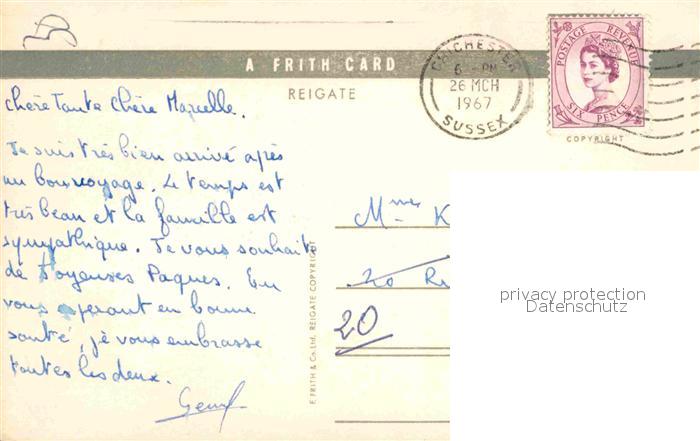 A FRITH CARD
REIGATE
CHICHESTER
6 - PM
26 MCH
1967
SUSSEX
POSTAGE REVENUE
SIX PENCE
COPYRIGHT
Chère Tante Chère Marcelle.
Je suis très bien arrivé après
un bon voyage. Le temps est
très beau et la famille est
sympathique. Je vous souhaite
de Joyeuses Paques. En
vous esperant en bonne
santé, je vous embrasse
toutes les deux.
F. FRITH & Co. Ltd. REIGATE COPYRIGHT
Mmes K
20 R
20
privacy protection
Datenschutz